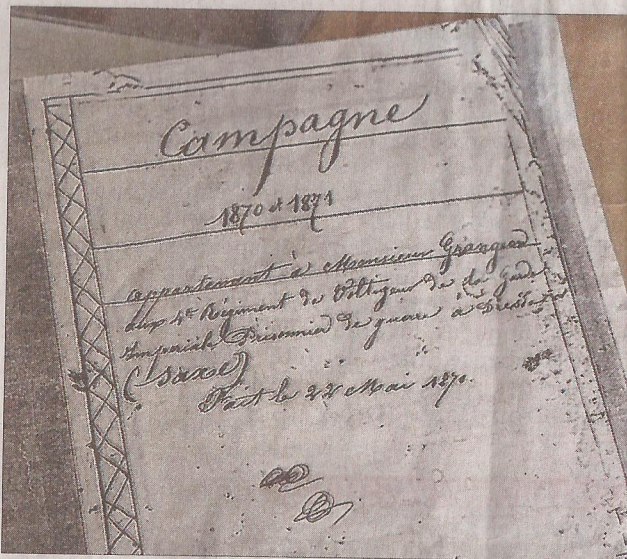 Campagne
1870 et 1871
appartenant à Monsieur Grangeon
aux 4e Régiment de Voltigeur de la Garde
Imperiale Prisonnier de guerre à
(Saxe)
Fait le 22 Mai 1870.